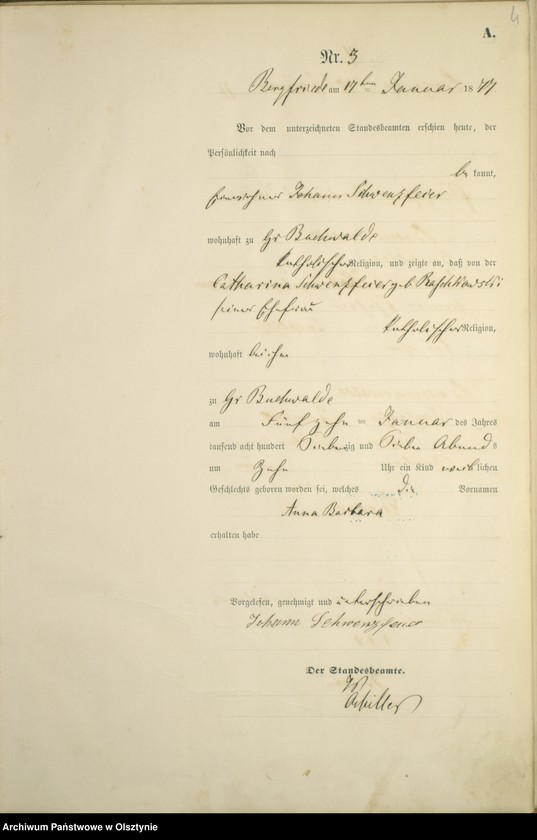 4
A.
Nr. 3
Bergfriede am 17ten Januar 1877
Vor dem unterzeichneten Standesbeamten erschien heute, der
Persönlichkeit nach
be kannt,
Johann Schwenzfeier
wohnhaft zu Gr Buchwalde
katholischer Religion, und zeigte an, daß von der
Catharina Schwenzfeier geb Raschkowski
seiner Ehefrau
katholischer Religion,
wohnhaft bei ihm
zu Gr Buchwalde
am Fünfzehn ten Januar des Jahres
tausend acht hundert Siebenzig und Sieben Abends
um Zehn Uhr ein Kind weiblichen
Geschlechts geboren worden sei, welches die Vornamen
Anna Barbara
erhalten habe
Vorgelesen, genehmigt und unterschrieben
Johann Schwenzfeier
Der Standesbeamte.
Archiwum Państwowe w Olsztynie